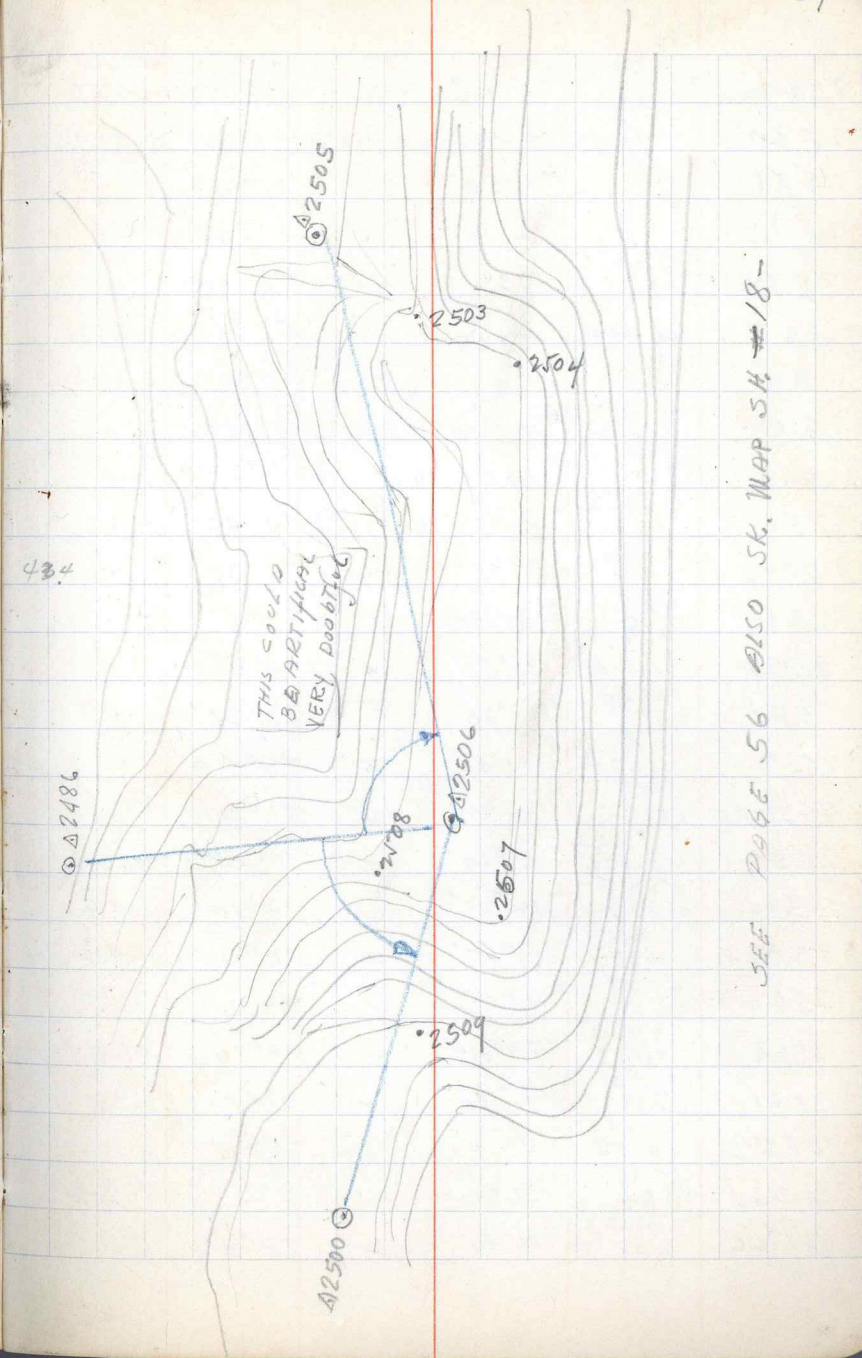 434
△2486
△2505
.2503
.2504
THIS COULD
BE ARTIFICAL
VERY DOUBTFUL
△2506
.2508
.2507
.2509
△2500
SEE PAGE 56 ALSO SK. MAP SH. #18-